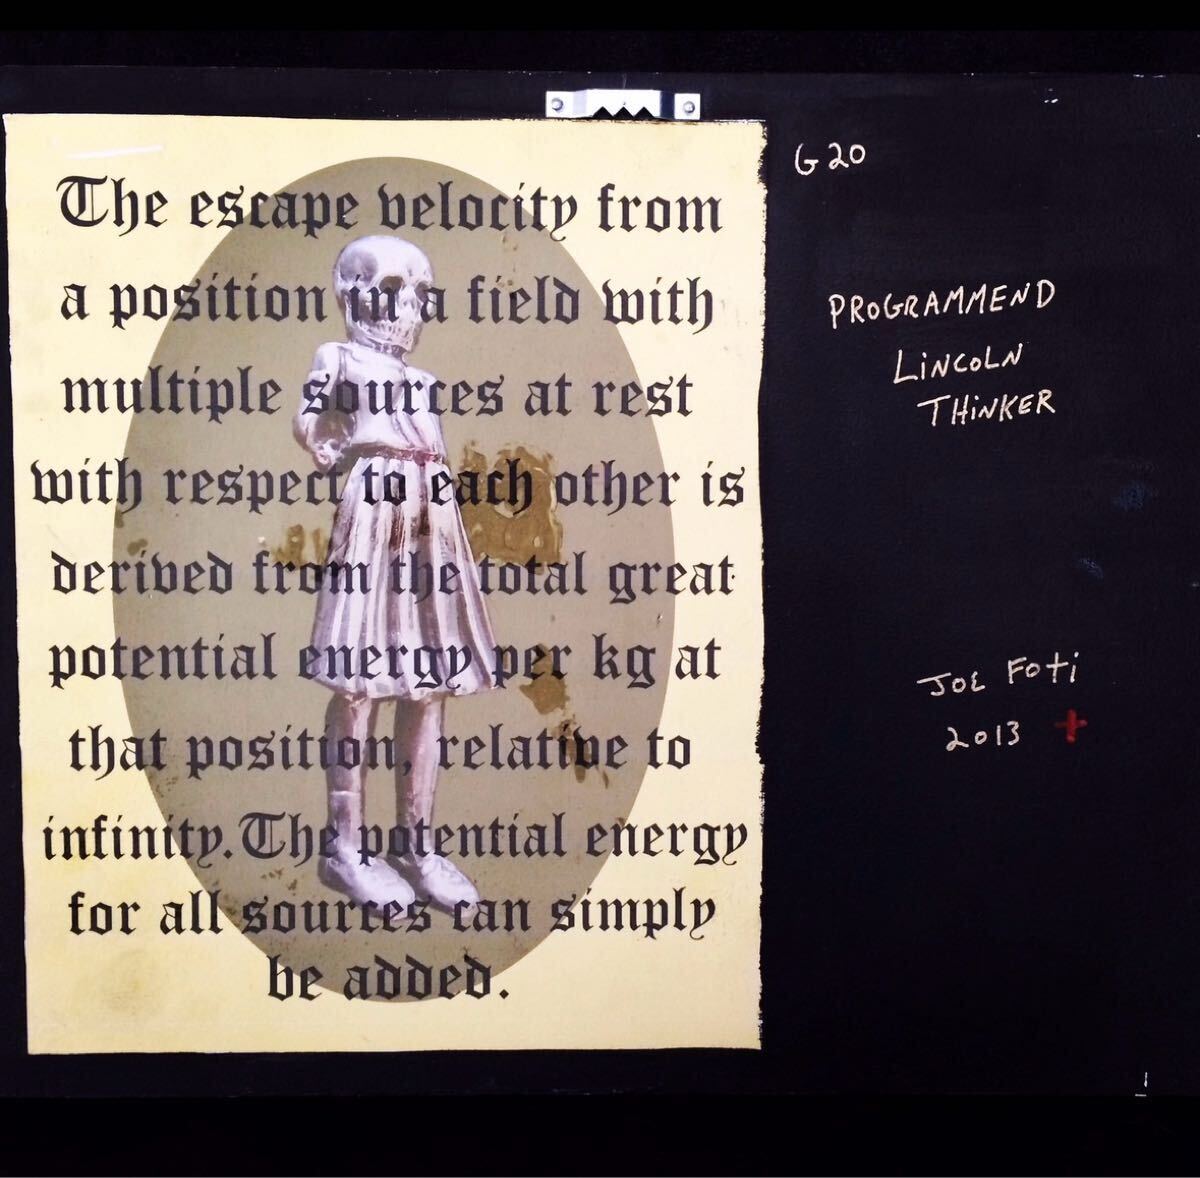 The escape velocity from
a position in a field with
multiple sources at rest
with respect to each other is
derived from the total great
potential energy per kg at
that position, relative to
infinity. The potential energy
for all sources can simply
be added.
G20
PROGRAMMEND
LiNCOLN
THiNKER
JOE FOti
2013 +